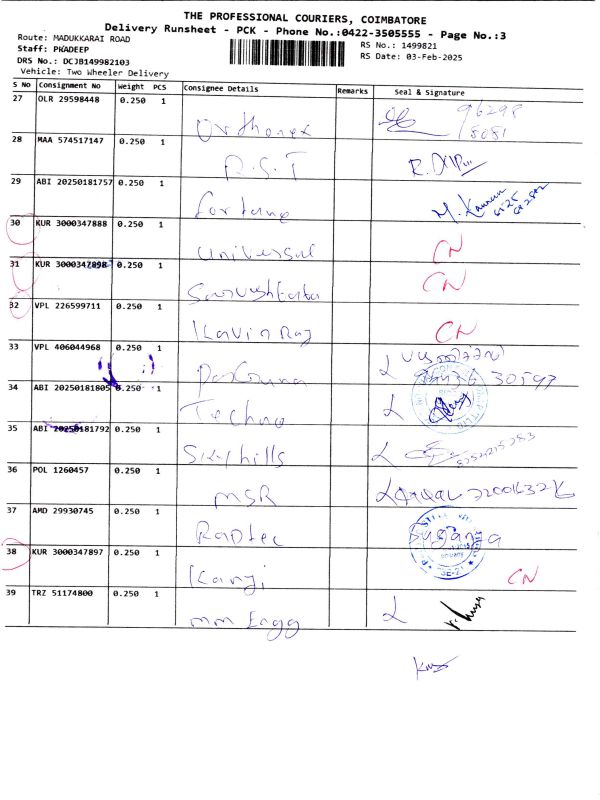 THE PROFESSIONAL COURIERS, COIMBATORE
Delivery Runsheet - PCK - Phone No.:0422-3505555 - Page No.:3
Route: MADUKKARAI ROAD
RS No.: 1499821
Staff: PKADEEP
RS Date: 03-Feb-2025
DRS No.: DCJB149982103
Vehicle: Two Wheeler Delivery
S No Consignment No Weight PCS Consignee Details Remarks Seal & Signature
27 OLR 29598448 0.250 1 Orthonex 96298 8081
28 MAA 574517147 0.250 1 R.S.T
29 ABI 20250181757 0.250 1 fortune M.
30 KUR 3000347888 0.250 1 universal CN
31 KUR 3000347898 0.250 1 CN
32 VPL 226599711 0.250 1 Kavin Raj CN
33 VPL 406044968 0.250 1
34 ABI 20250181805 0.250 1 Techno
35 ABI 20250181792 0.250 1 Skyhills
36 POL 1260457 0.250 1 MSR
37 AMD 29930745 0.250 1 Raptec Suganya
38 KUR 3000347897 0.250 1 Kanji CN
39 TRZ 51174800 0.250 1 mm Engg